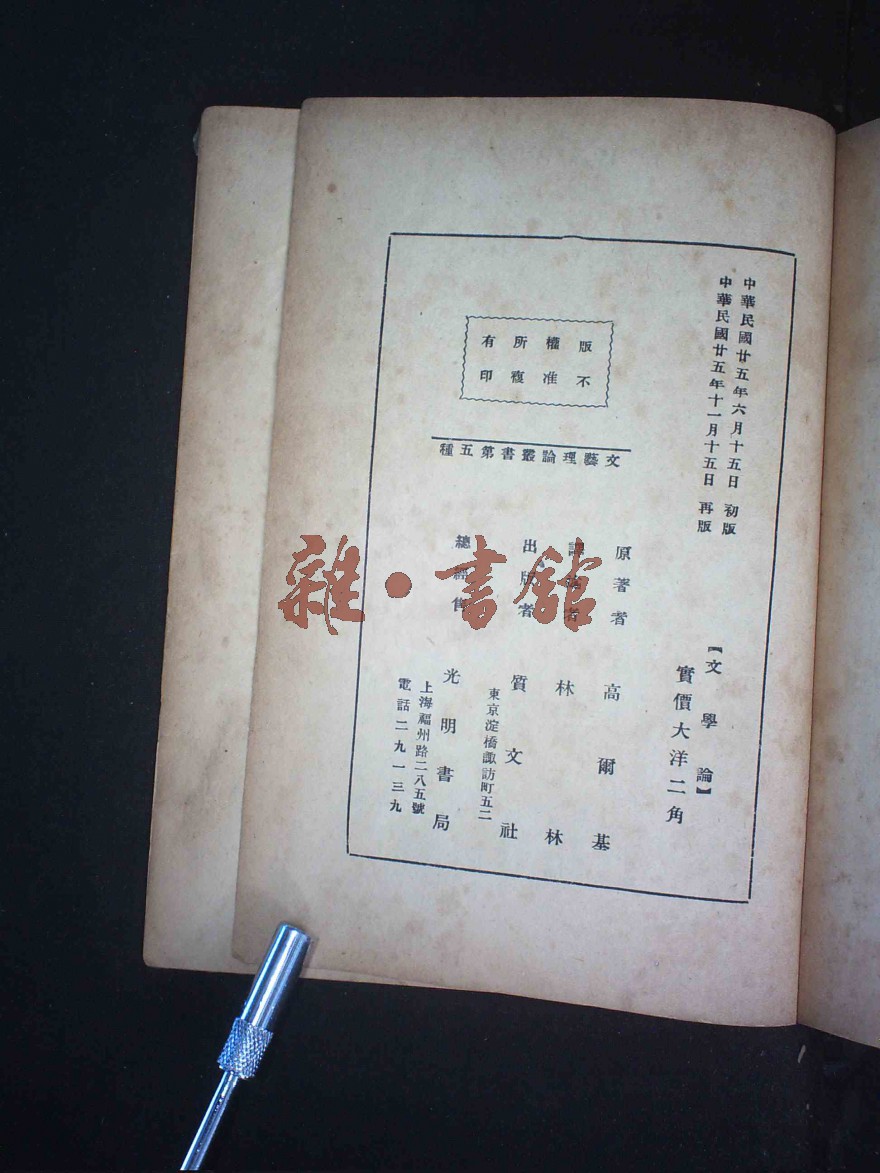 中華民國廿五年六月十五日 初版
中華民國廿五年十一月十五日 再版
【文學論】
實價大洋二角
原著者 高爾基
譯述者 林林
出版者 質文社
東京淀橋諏訪町五二
總經售 光明書局
上海福州路二八五號
電話二九一三九
文藝理論叢書第五種
版權所有
不准複印
雜·書館